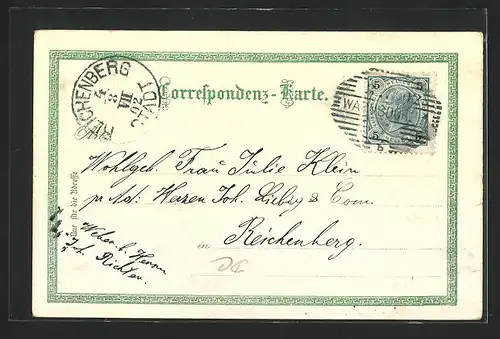 REICHENBERG STADT
4
8
VII
02
Correspondenz-Karte.
5 5
5 5
WA
Nur für die Adresse
Wohlgeb. Frau Julie Klein
p. Ad: Herren Joh. Liebig & Com.
in Reichenberg.
Weber b. Herrn
Joh. Richter.